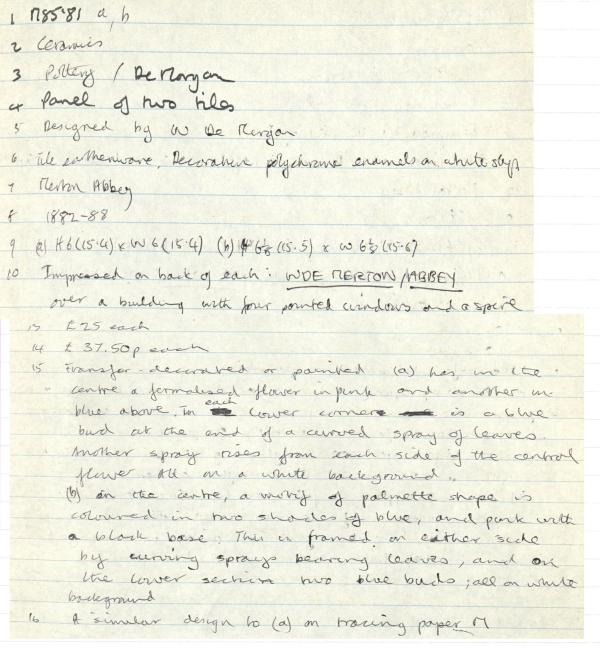 1 M85·81 a, b
2 Ceramics
3 Pottery / De Morgan
4 Panel of two tiles
5 Designed by W De Morgan
6 Tile earthenware. Decorative polychrome enamels on white slip
7 Merton Abbey
8 1882-88
9 (a) H 6 (15·4) x W 6 (15·4) (b) H 6⅛ (15·5) x W 6⅛ (15·6)
10 Impressed on back of each: W DE MERTON / ABBEY
over a building with four pointed windows and a spire
13 £25 each
14 £ 37.50p each
15 Transfer-decorated or painted (a) has in the
centre a formalised flower in pink and another in
blue above. In each lower corner is a blue
bud at the end of a curved spray of leaves.
Another spray rises from each side of the central
flower. All on a white background.
(b) on the centre, a motif of palmette shape is
coloured in two shades of blue, and pink with
a black base. This is framed on either side
by curving sprays bearing leaves, and on
the lower section two blue buds; all on white
background
16 A similar design to (a) on tracing paper